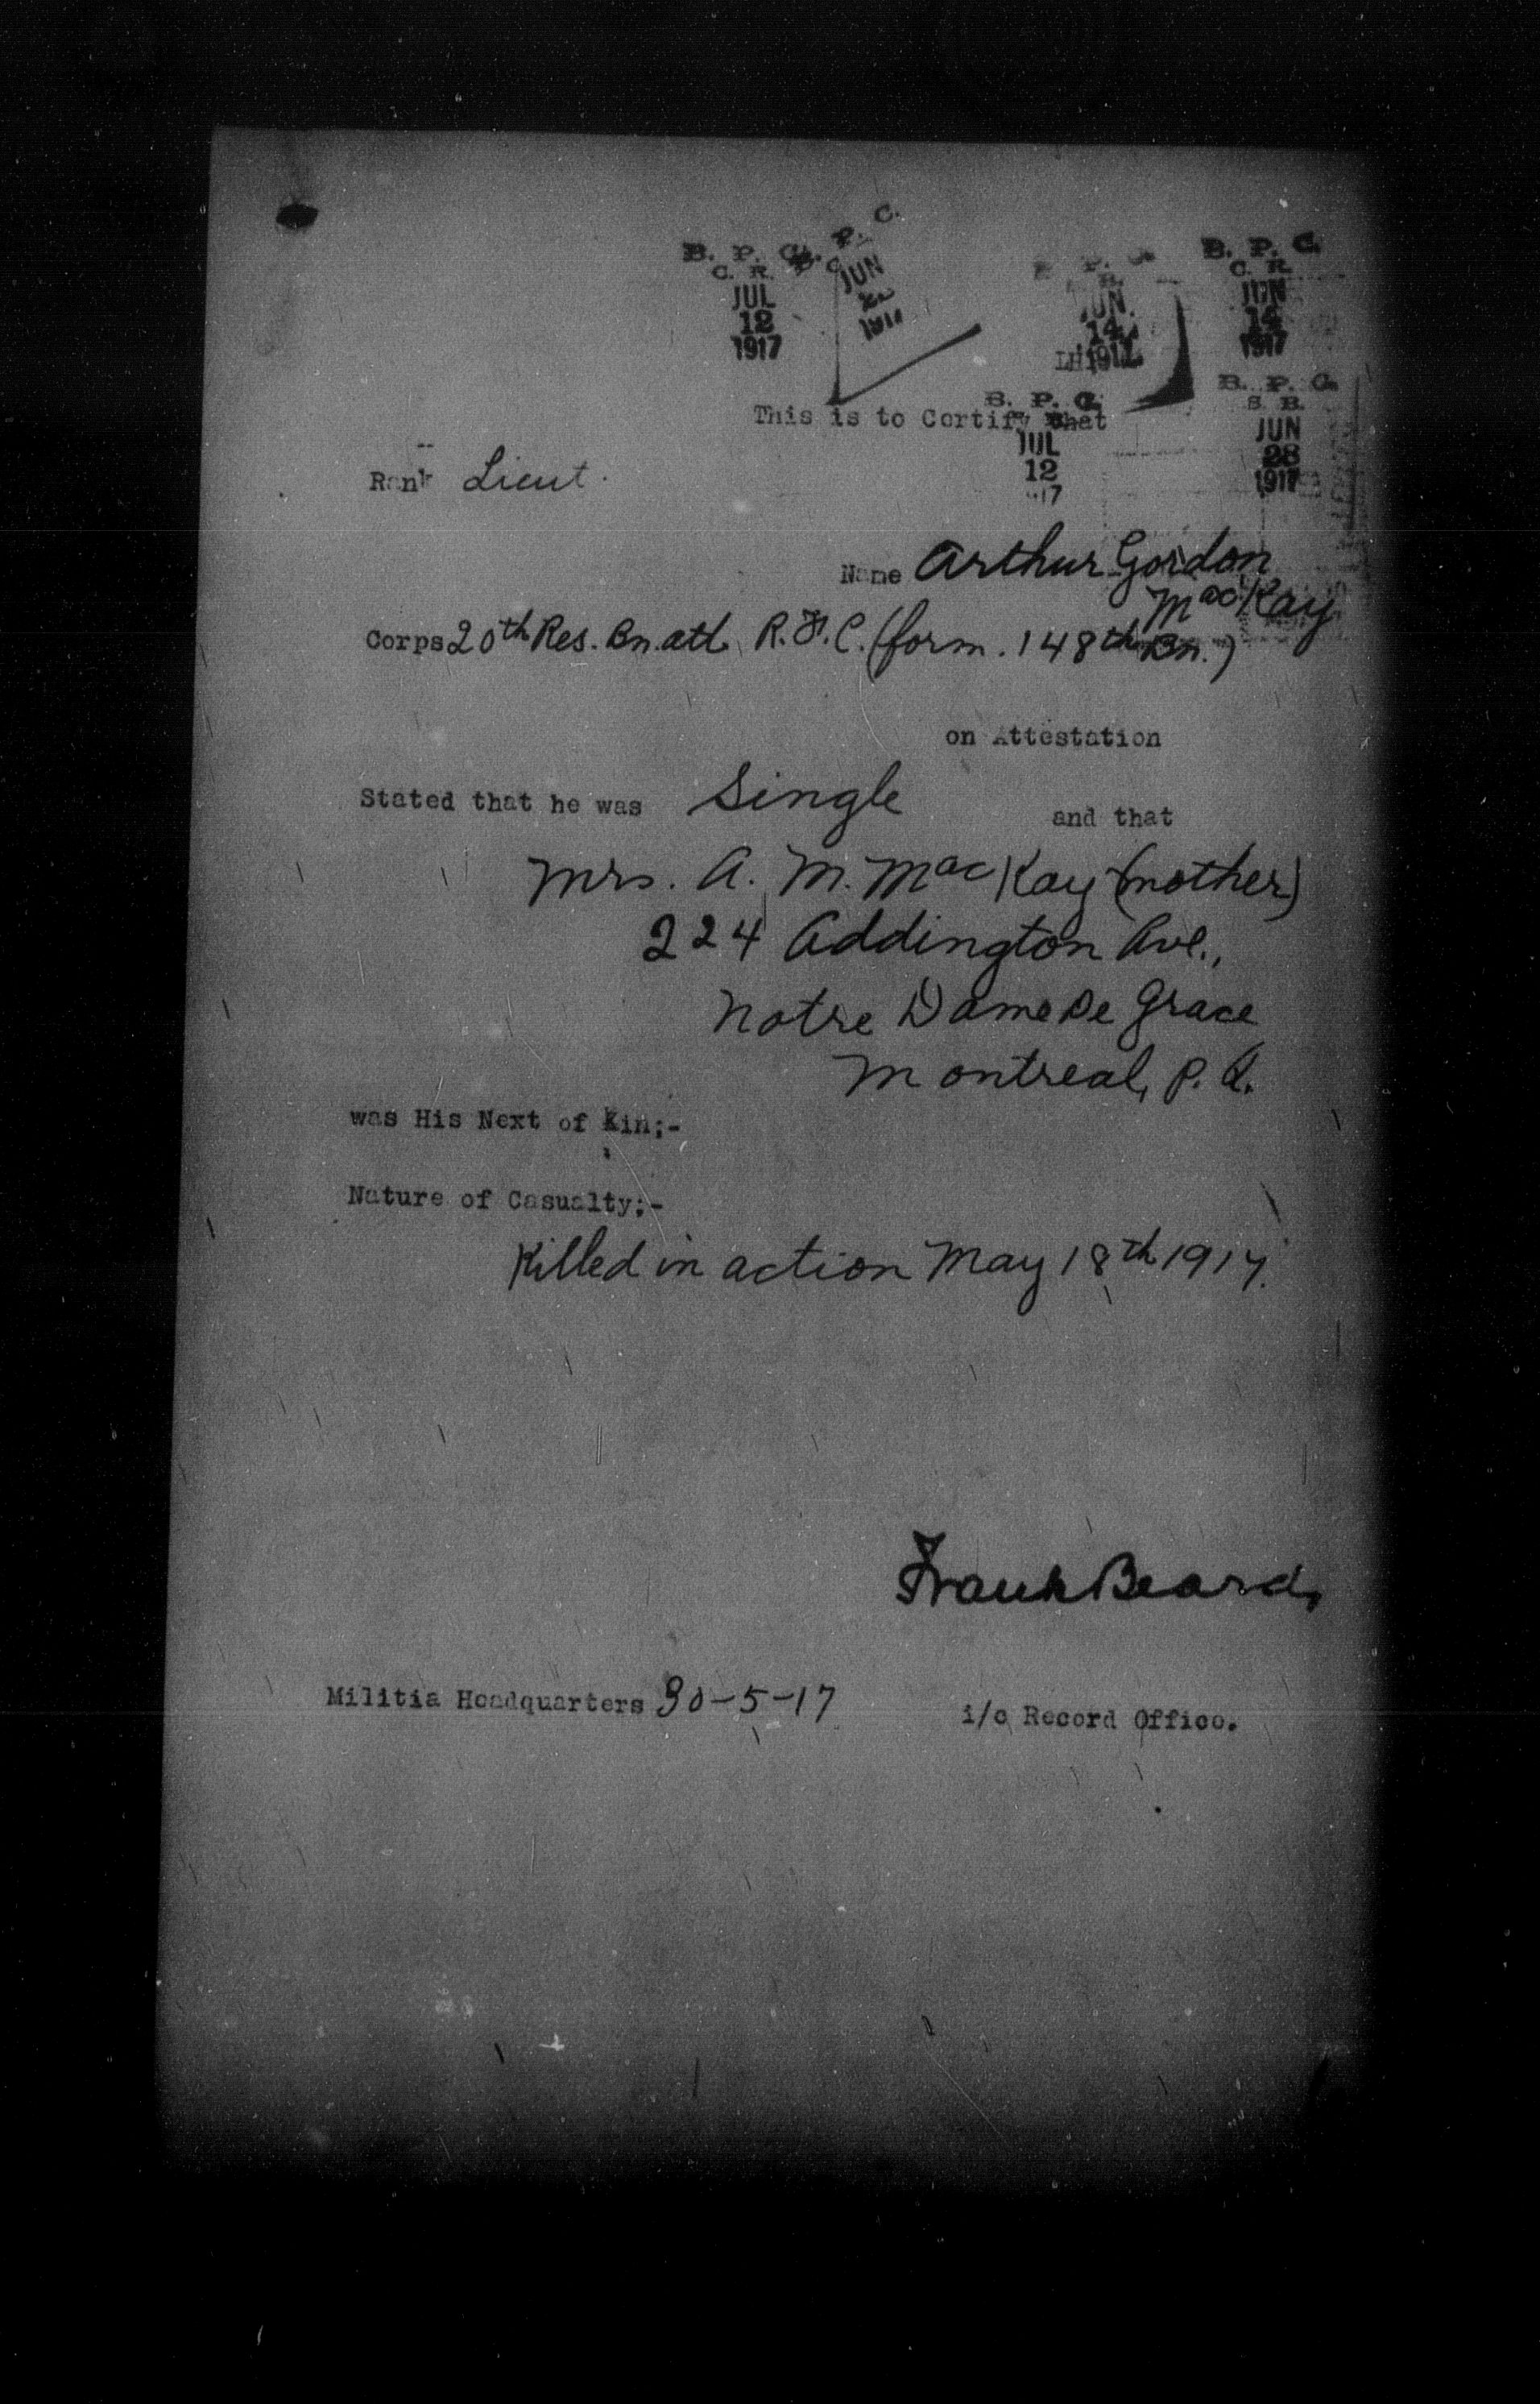 B. P. C.
C. R.
JUL
12
1917
P. C.
JUN
B. P. C.
JUN
14
B. P. C.
C. R.
JUN
14
1917
B. P. C.
S. B.
JUN
28
1917
B. P. C.
JUL
12
17
This is to Certify that
Rank Lieut.
Name Arthur Gordon
MacKay
Corps 20th Res. Bn. att. R.F.C. (form. 148th Bn.)
on Attestation
Stated that he was Single and that
Mrs. A. M. MacKay (mother)
224 Addington Ave.,
Notre Dame De Grace
Montreal, P. Q.
was His Next of Kin;-
Nature of Casualty;-
Killed in action May 18th 1917.
Frank Beard,
Militia Headquarters 30-5-17
i/c Record Office.